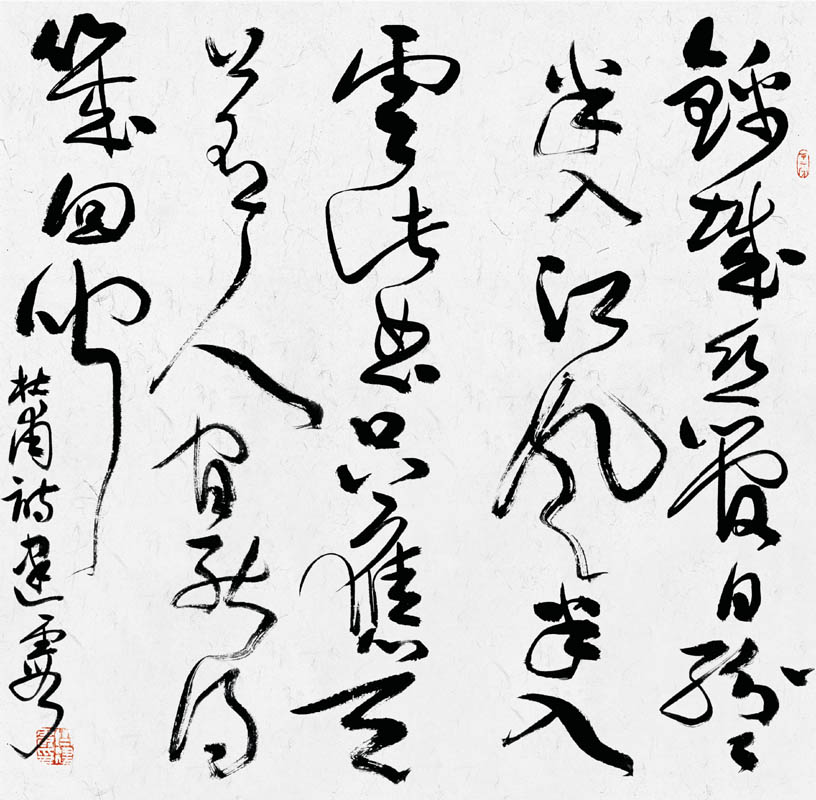 錦城絲管日紛々
半入江風半入
雲此曲只應天
上有人間能得
幾回聞
杜甫詩